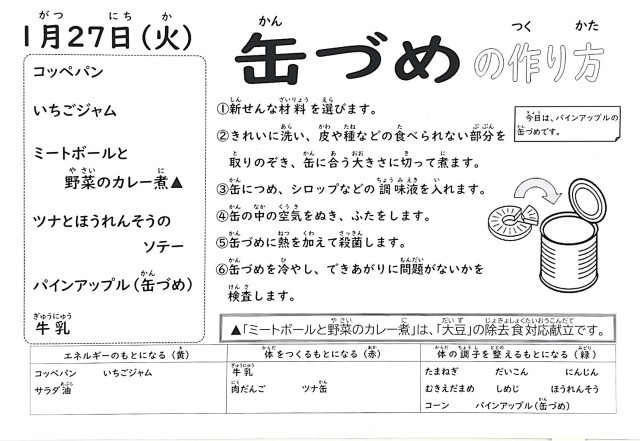 1月27日(火)
コッペパン
いちごジャム
ミートボールと
野菜のカレー煮▲
ツナとほうれんそうの
ソテー
パインアップル(缶づめ)
牛乳
缶づめの作り方
①新せんな材料を選びます。
②きれいに洗い、皮や種などの食べられない部分を
取りのぞき、缶に合う大きさに切って煮ます。
③缶につめ、シロップなどの調味液を入れます。
④缶の中の空気をぬき、ふたをします。
⑤缶づめに熱を加えて殺菌します。
⑥缶づめを冷やし、できあがりに問題がないかを
検査します。
今日は、パインアップルの
缶づめです。
▲「ミートボールと野菜のカレー煮」は、「大豆」の除去食対応献立です。
エネルギーのもとになる(黄)
コッペパン いちごジャム
サラダ油
体をつくるもとになる(赤)
牛乳
肉だんご ツナ缶
体の調子を整えるもとになる(緑)
たまねぎ だいこん にんじん
むきえだまめ しめじ ほうれんそう
コーン パインアップル(缶づめ)